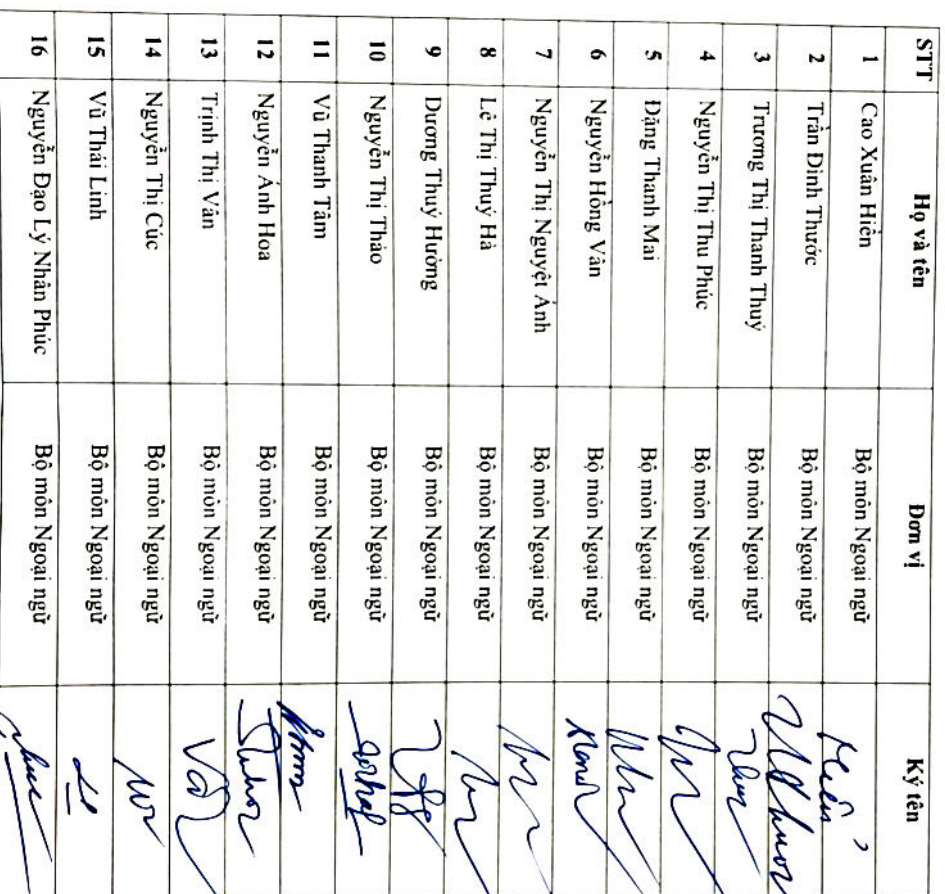 STT Họ và tên Đơn vị Ký tên
1 Cao Xuân Hiền Bộ môn Ngoại ngữ Hiền
2 Trần Đình Thước Bộ môn Ngoại ngữ
3 Trương Thị Thanh Thuý Bộ môn Ngoại ngữ
4 Nguyễn Thị Thu Phúc Bộ môn Ngoại ngữ
5 Đặng Thanh Mai Bộ môn Ngoại ngữ
6 Nguyễn Hồng Vân Bộ môn Ngoại ngữ
7 Nguyễn Thị Nguyệt Ánh Bộ môn Ngoại ngữ
8 Lê Thị Thuý Hà Bộ môn Ngoại ngữ
9 Dương Thuý Hường Bộ môn Ngoại ngữ
10 Nguyễn Thị Thảo Bộ môn Ngoại ngữ
11 Vũ Thanh Tâm Bộ môn Ngoại ngữ
12 Nguyễn Ánh Hoa Bộ môn Ngoại ngữ
13 Trịnh Thị Vân Bộ môn Ngoại ngữ
14 Nguyễn Thị Cúc Bộ môn Ngoại ngữ
15 Vũ Thái Linh Bộ môn Ngoại ngữ
16 Nguyễn Đạo Lý Nhân Phúc Bộ môn Ngoại ngữ